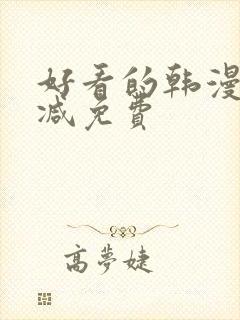 好看的韩漫
减免费
高梦婕